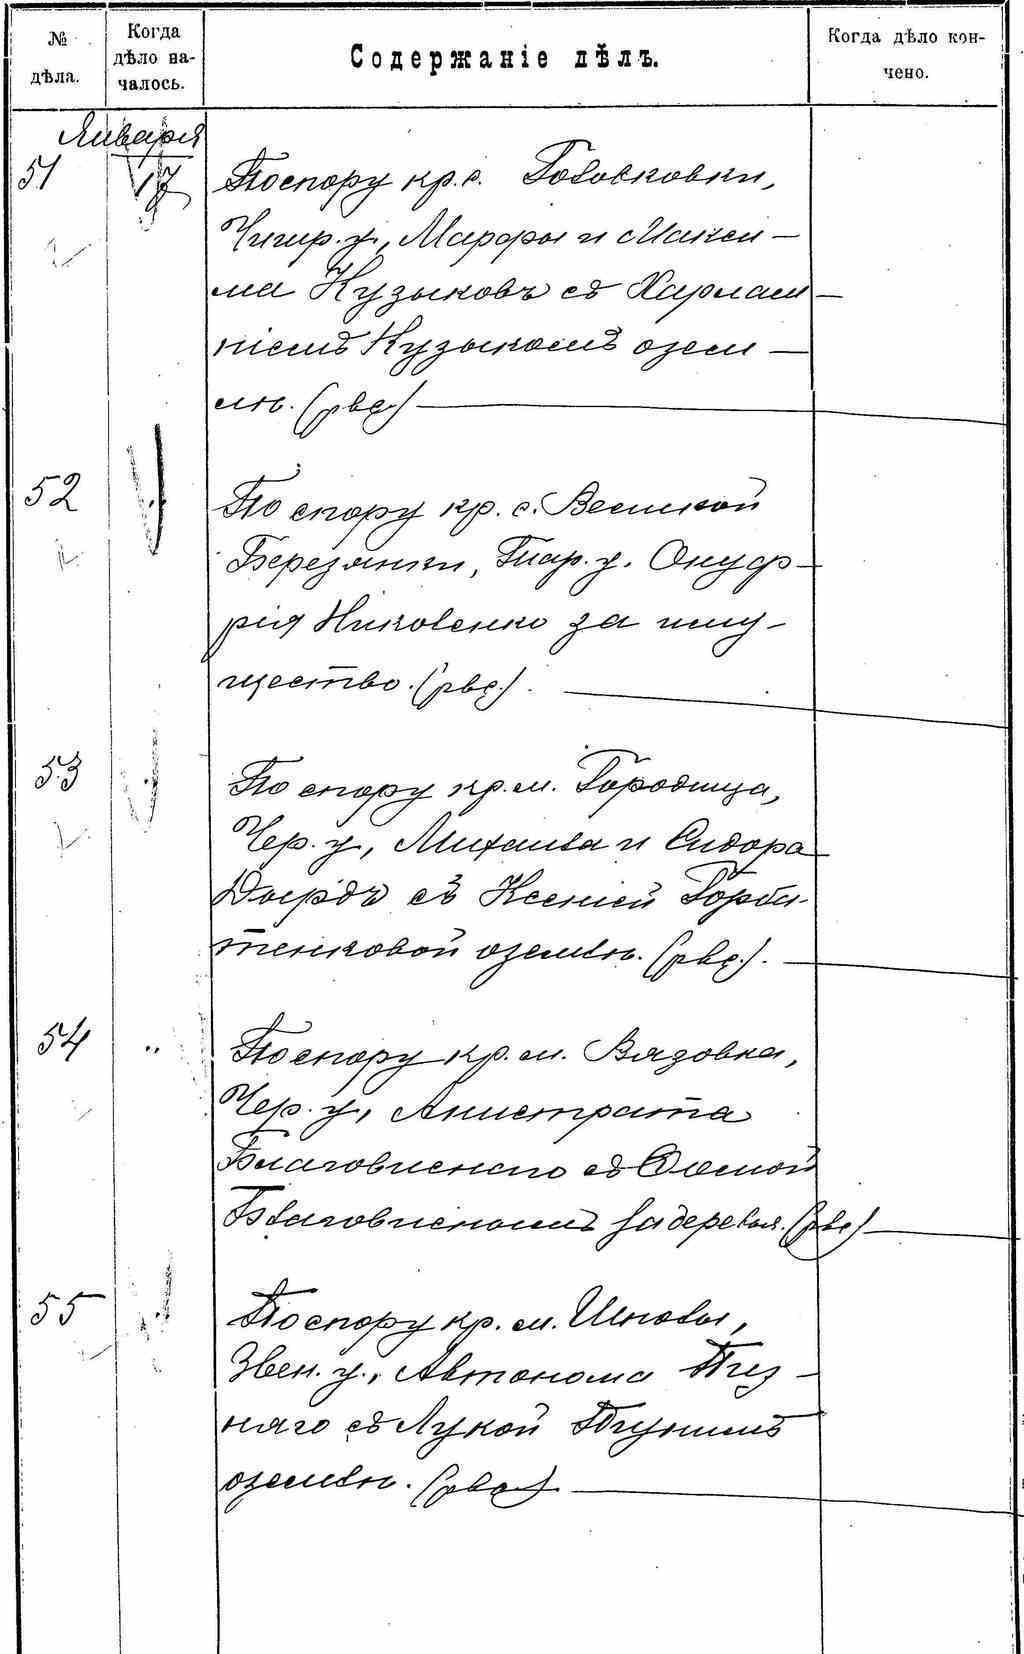 № дѣла.
Когда дѣло началось.
Содержаніе дѣлъ.
Когда дѣло кончено.
Января
51 17 По спору кр. с. Головковки,
Чигир. у., Марфы и Макси-
ма Кузыковъ съ Харлам-
піемъ Кузыкомъ о зем-
лѣ. (рвс)
52 По спору кр. с. Великой
Березянки, Тар. у. Онуф-
рія Никовенко за иму-
щество. (рвс).
53 По спору кр. м. Городища,
Чер. у., Михаила и Сидора
съ Ксеніей Горба-
тенковой о землѣ. (рвс).
54 " По спору кр. м. Вязовка,
Чер. у., Анистрата
Благовиснаго съ
Благовиснымъ за деревья. (рвс)
55 По спору кр. м. Шполы,
Звен. у., Автонома
съ Лукой
о землѣ. (рвс)